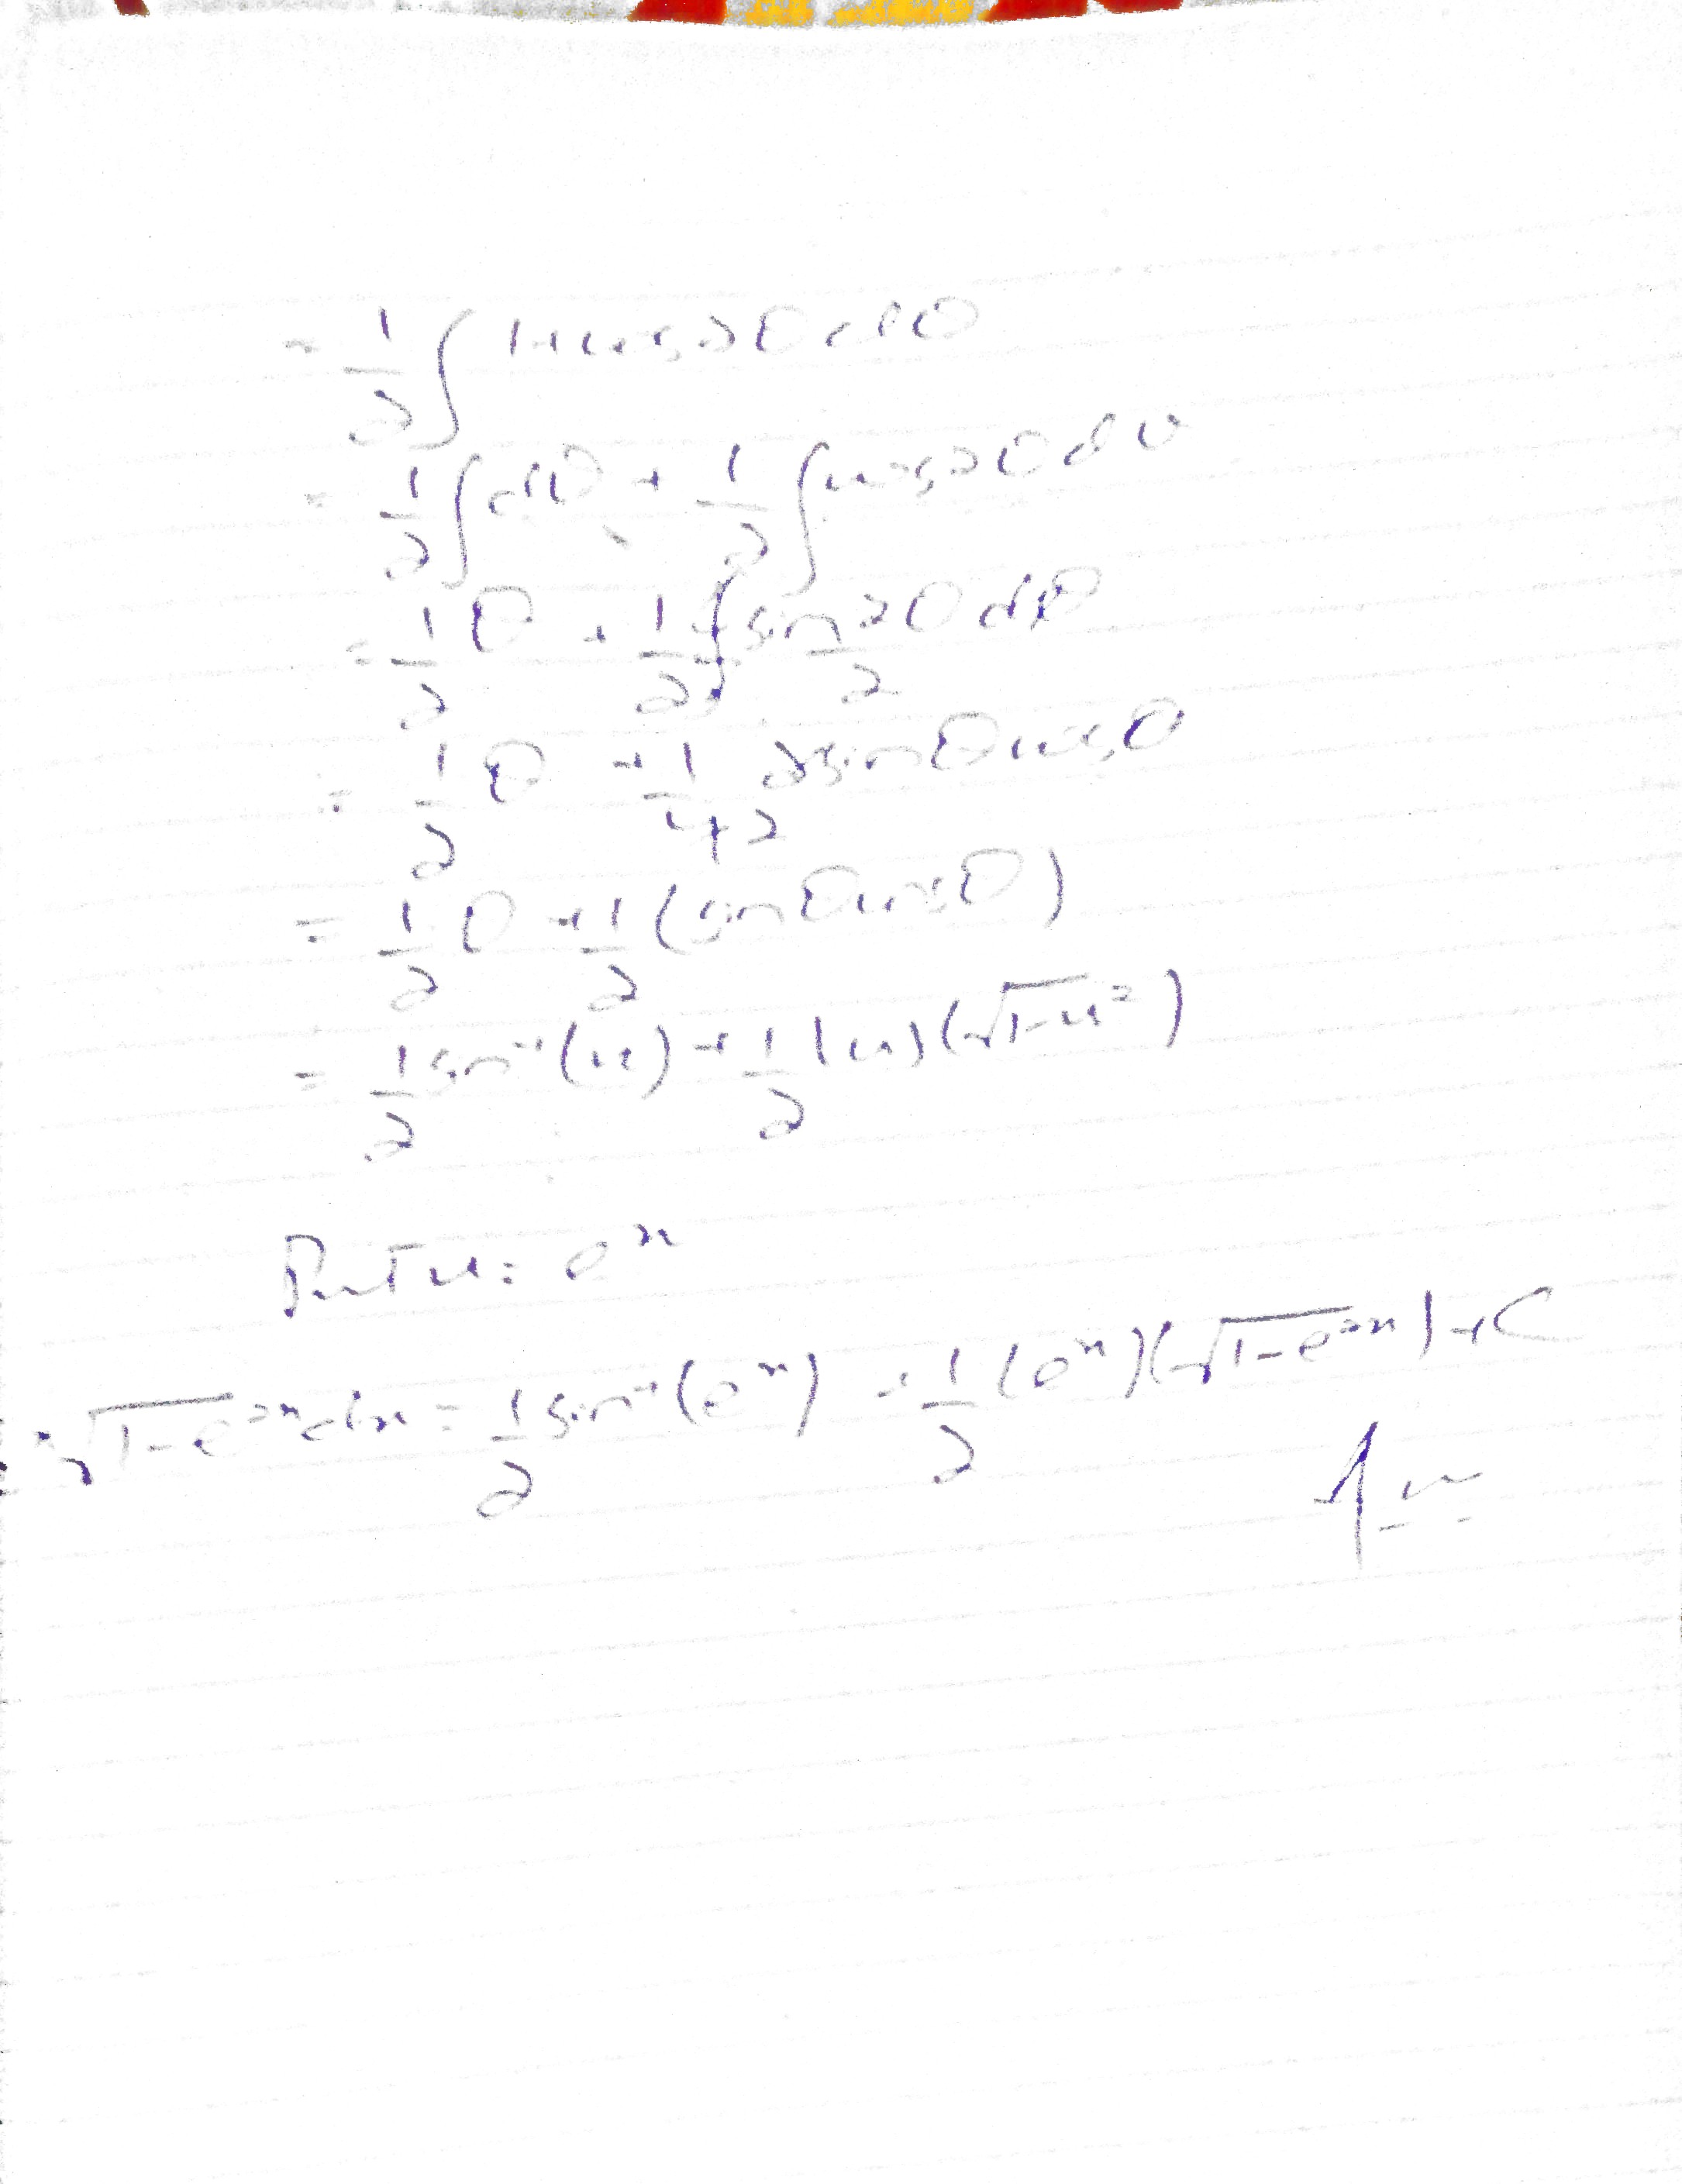 = 1/2 ∫ 1+cos2θ dθ
= 1/2 ∫ dθ + 1/2 ∫ cos2θ dθ
= 1/2 θ + 1/2 ∫ sin2θ/2 dθ
= 1/2 θ + 1/(4×2) 2sinθcosθ
= 1/2 θ + 1/2 (sinθcosθ)
= 1/2 sin⁻¹(u) + 1/2 (u)(√(1-u²))
Put u = eˣ
√(1-e²ˣ) dx = 1/2 sin⁻¹(eˣ) + 1/2 (eˣ)(√(1-e²ˣ)) + C